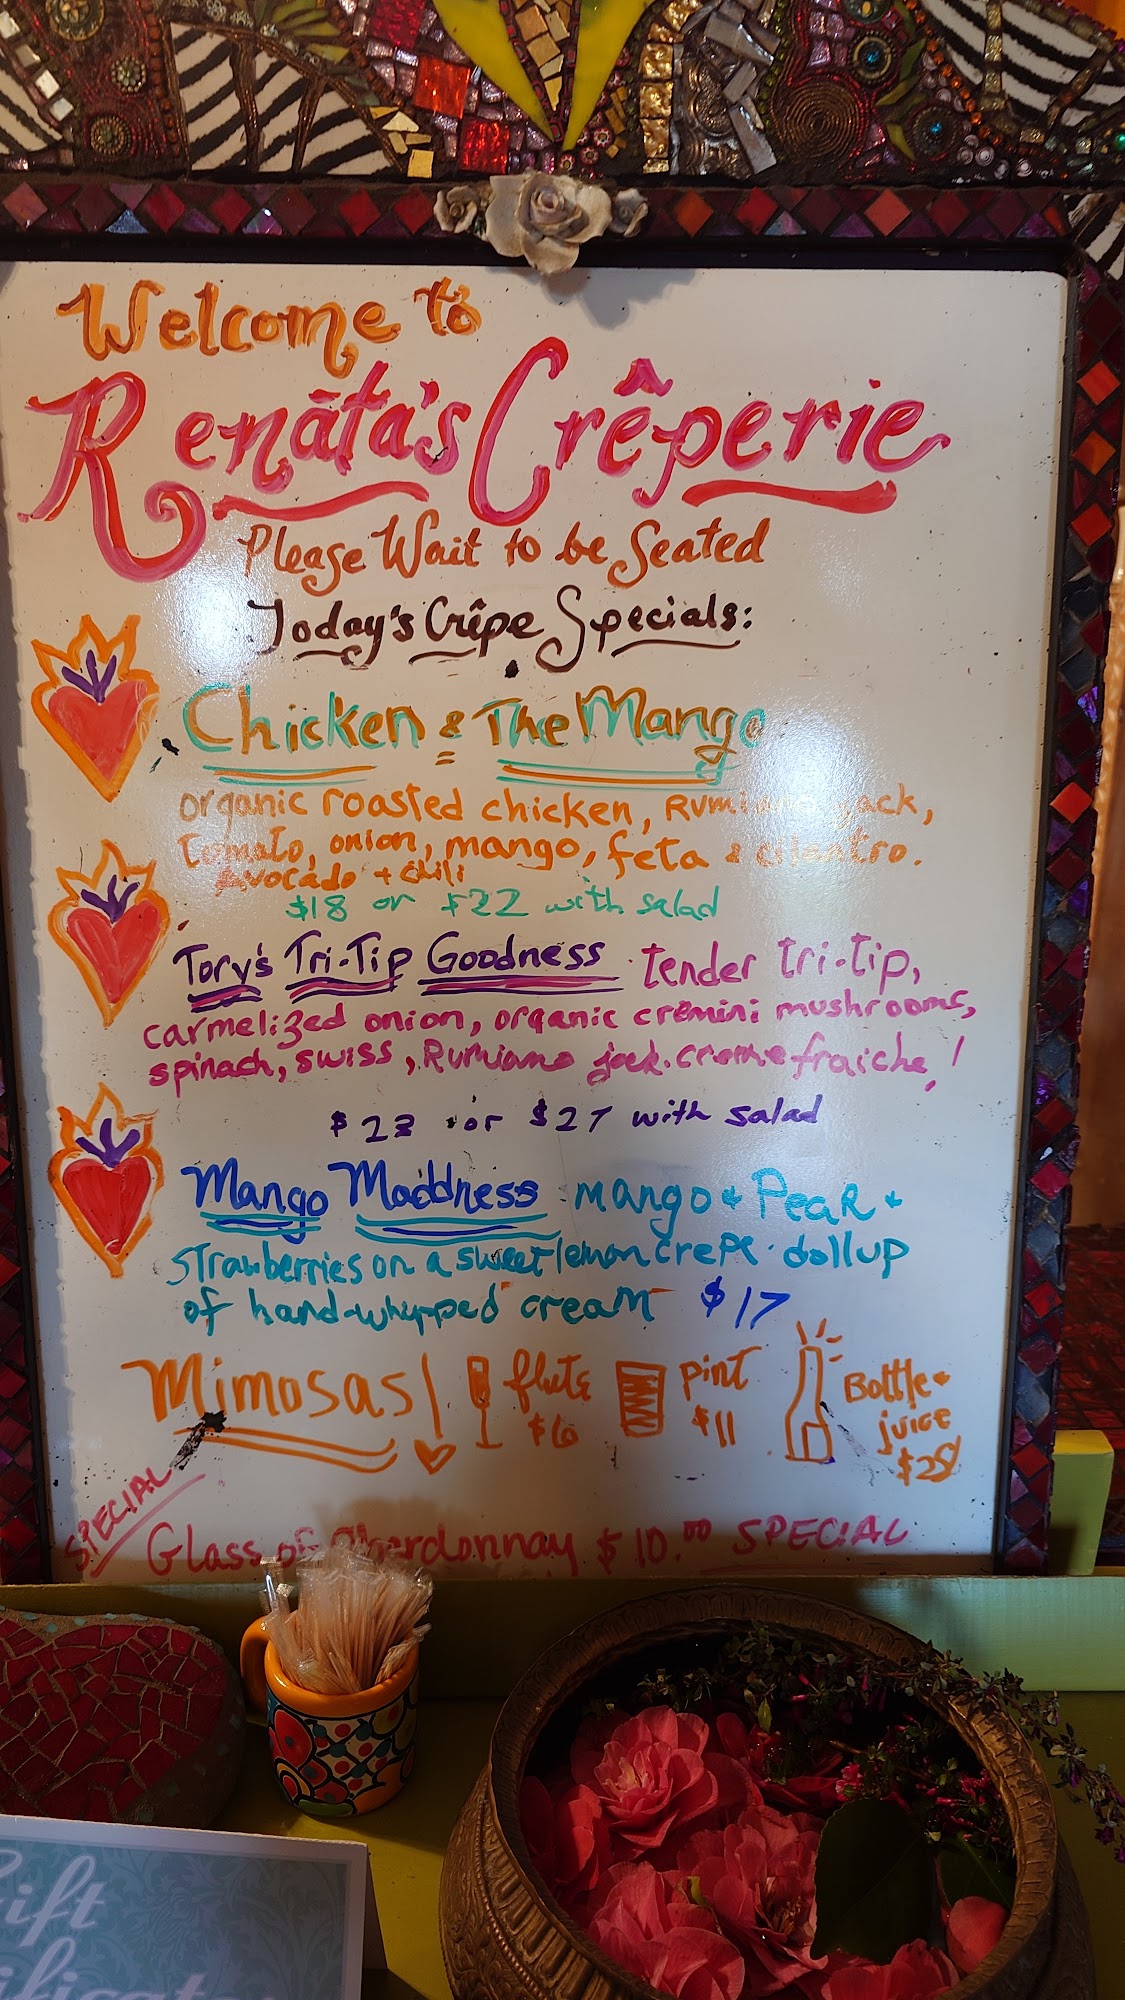 Welcome to
Renāta's Crêperie
Please Wait to be Seated
Today's Crêpe Specials:
Chicken & The Mango
organic roasted chicken, Rumiano jack,
Tomato, onion, mango, feta & cilantro.
Avocado + Chili
$18 or $22 with salad
Tory's Tri-Tip Goodness tender tri-tip,
carmelized onion, organic cremini mushrooms,
spinach, swiss, Rumiano jack. creme fraiche!
$23 or $27 with salad
Mango Maddness mango & Pear &
strawberries on a sweet lemon crepe. dollup
of hand-whipped cream $17
Mimosas! flute $6 pint $11 Bottle & juice $25
SPECIAL
Glass of Chardonnay $10.00 SPECIAL
Gift